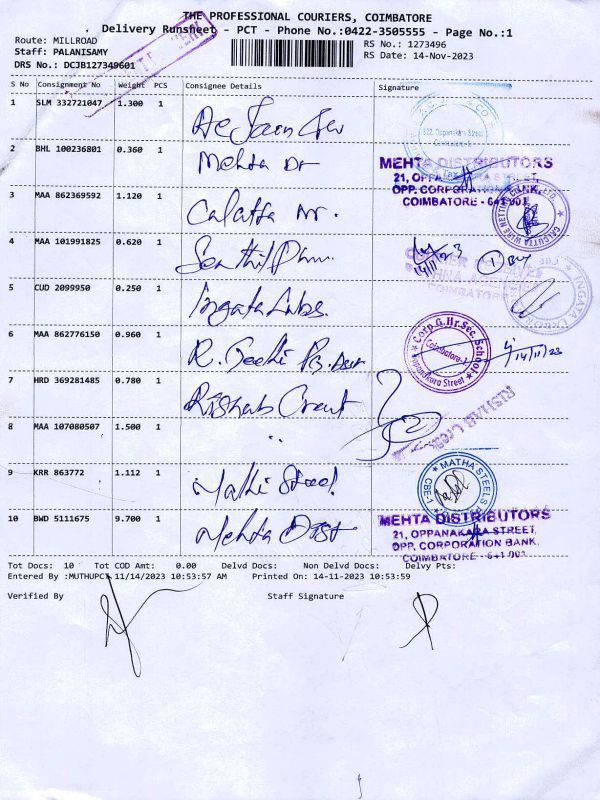 THE PROFESSIONAL COURIERS, COIMBATORE
Delivery Runsheet - PCT - Phone No.:0422-3505555 - Page No.:1
Route: MILLROAD
RS No.: 1273496
Staff: PALANISAMY
RS Date: 14-Nov-2023
DRS No.: DCJB127349601
S No Consignment No Weight PCS Consignee Details Signature
1 SLM 332721047 1.300 1
2 BHL 100236801 0.360 1 Mehta Dr
MEHTA DISTRIBUTORS
21, OPPANAKARA STREET,
OPP. CORPORATION BANK,
COIMBATORE - 641 001
3 MAA 862369592 1.120 1 Calcutta
4 MAA 101991825 0.620 1 Senthil
14/11/23
5 CUD 2099950 0.250 1 Ingata Labs.
6 MAA 862776150 0.960 1 R.
Corp.G.Hr.Sec.School
Coimbatore-1
Oppanakara Street
14/11/23
7 HRD 369281485 0.780 1 Rishab Creat
8 MAA 107080507 1.500 1 "
9 KRR 863772 1.112 1 Steel
MATHA STEELS
CBE-1
10 BWD 5111675 9.700 1 Mehta Dist
MEHTA DISTRIBUTORS
21, OPPANAKARA STREET,
OPP. CORPORATION BANK,
COIMBATORE - 641 001
Tot Docs: 10 Tot COD Amt: 0.00 Delvd Docs: Non Delvd Docs: Delvy Pts:
Entered By :MUTHUPCT 11/14/2023 10:53:57 AM Printed On: 14-11-2023 10:53:59
Verified By Staff Signature